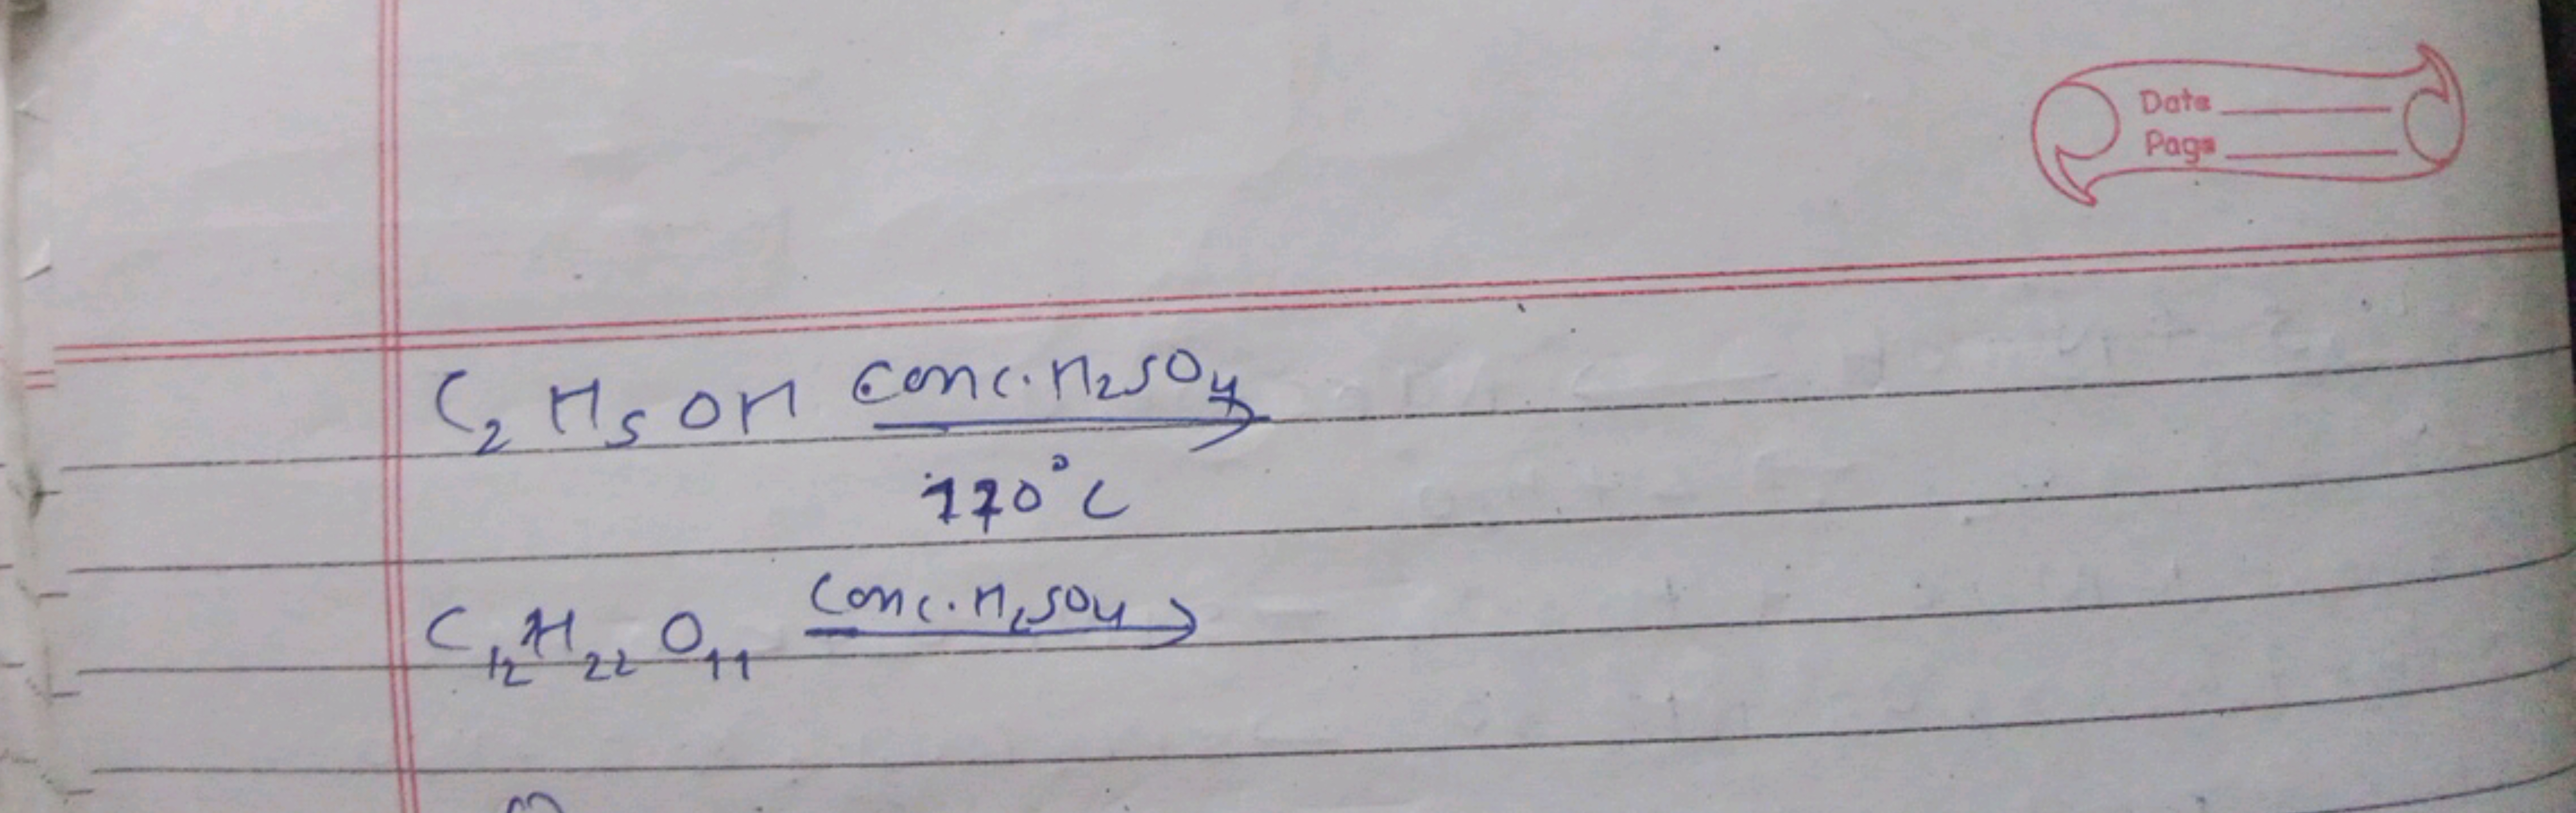 Date
Page
C₂H₅OH conc. H₂SO₄ →
170°C
C₁₂H₂₂O₁₁ Conc. H₂SO₄ →